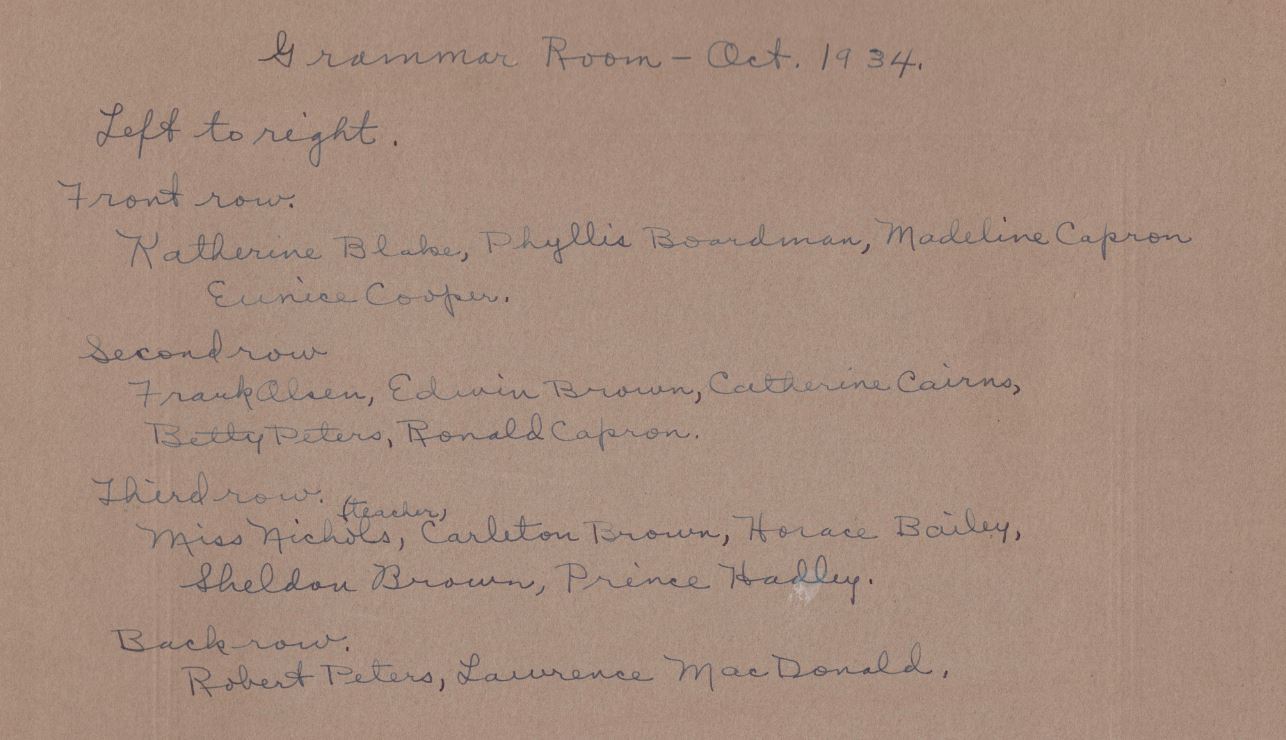 Grammar Room - Oct. 1934.
Left to right.
Front row.
Katherine Blake, Phyllis Boardman, Madeline Capron
Eunice Cooper.
Second row
Frank Olsen, Edwin Brown, Catherine Cairns,
Betty Peters, Ronald Capron.
Third row.
(teacher)
Miss Nichols, Carleton Brown, Horace Bailey,
Sheldon Brown, Prince Hadley.
Back row.
Robert Peters, Lawrence MacDonald.